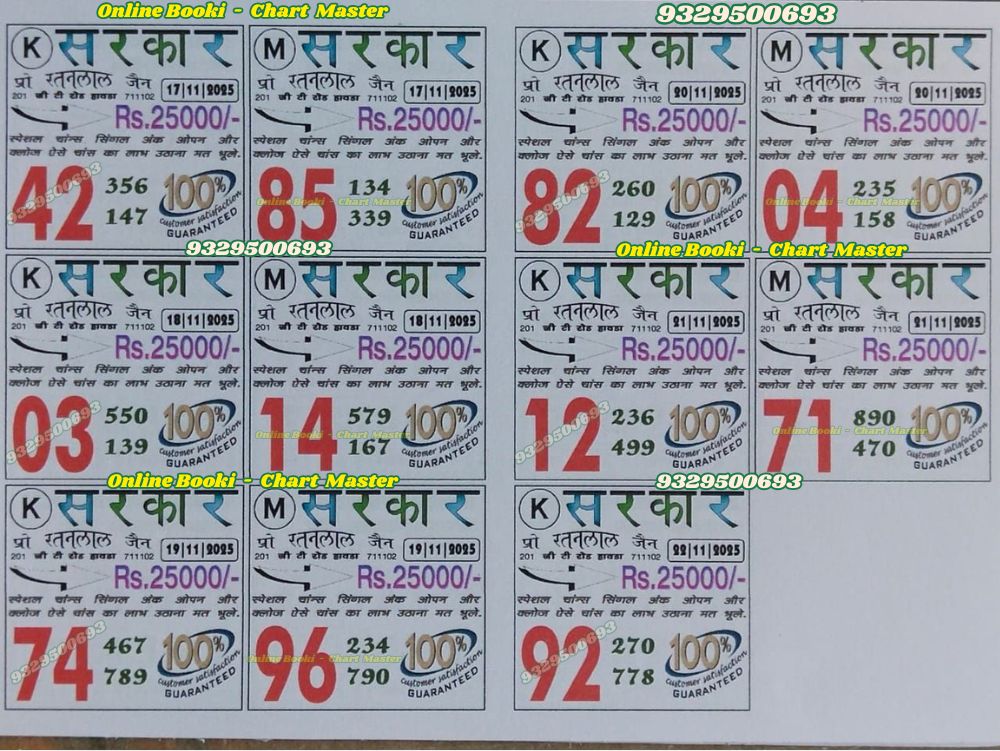 Online Booki - Chart Master
9329500693
K सरकार
प्रो रतनलाल जैन
201 जी टी रोड हावडा 711102
17|11|2025
Rs.25000/-
स्पेशल चांन्स सिंगल अंक ओपन और
क्लोज ऐसे चांस का लाभ उठाना मत भूले.
42
356
147
100%
customer satisfaction
GUARANTEED
9329500693
M सरकार
प्रो रतनलाल जैन
201 जी टी रोड हावडा 711102
17|11|2025
Rs.25000/-
स्पेशल चांन्स सिंगल अंक ओपन और
क्लोज ऐसे चांस का लाभ उठाना मत भूले.
85
134
339
100%
customer satisfaction
GUARANTEED
Online Booki - Chart Master
K सरकार
प्रो रतनलाल जैन
201 जी टी रोड हावडा 711102
20|11|2025
Rs.25000/-
स्पेशल चांन्स सिंगल अंक ओपन और
क्लोज ऐसे चांस का लाभ उठाना मत भूले.
82
260
129
100%
customer satisfaction
GUARANTEED
9329500693
M सरकार
प्रो रतनलाल जैन
201 जी टी रोड हावडा 711102
20|11|2025
Rs.25000/-
स्पेशल चांन्स सिंगल अंक ओपन और
क्लोज ऐसे चांस का लाभ उठाना मत भूले.
04
235
158
100%
customer satisfaction
GUARANTEED
Online Booki - Chart Master
9329500693
Online Booki - Chart Master
K सरकार
प्रो रतनलाल जैन
201 जी टी रोड हावडा 711102
18|11|2025
Rs.25000/-
स्पेशल चांन्स सिंगल अंक ओपन और
क्लोज ऐसे चांस का लाभ उठाना मत भूले.
03
550
139
100%
customer satisfaction
GUARANTEED
9329500693
M सरकार
प्रो रतनलाल जैन
201 जी टी रोड हावडा 711102
18|11|2025
Rs.25000/-
स्पेशल चांन्स सिंगल अंक ओपन और
क्लोज ऐसे चांस का लाभ उठाना मत भूले.
14
579
167
100%
customer satisfaction
GUARANTEED
Online Booki - Chart Master
K सरकार
प्रो रतनलाल जैन
201 जी टी रोड हावडा 711102
21|11|2025
Rs.25000/-
स्पेशल चांन्स सिंगल अंक ओपन और
क्लोज ऐसे चांस का लाभ उठाना मत भूले.
12
236
499
100%
customer satisfaction
GUARANTEED
9329500693
M सरकार
प्रो रतनलाल जैन
201 जी टी रोड हावडा 711102
21|11|2025
Rs.25000/-
स्पेशल चांन्स सिंगल अंक ओपन और
क्लोज ऐसे चांस का लाभ उठाना मत भूले.
71
890
470
100%
customer satisfaction
GUARANTEED
Online Booki - Chart Master
Online Booki - Chart Master
9329500693
K सरकार
प्रो रतनलाल जैन
201 जी टी रोड हावडा 711102
19|11|2025
Rs.25000/-
स्पेशल चांन्स सिंगल अंक ओपन और
क्लोज ऐसे चांस का लाभ उठाना मत भूले.
74
467
789
100%
customer satisfaction
GUARANTEED
9329500693
M सरकार
प्रो रतनलाल जैन
201 जी टी रोड हावडा 711102
19|11|2025
Rs.25000/-
स्पेशल चांन्स सिंगल अंक ओपन और
क्लोज ऐसे चांस का लाभ उठाना मत भूले.
96
234
790
100%
customer satisfaction
GUARANTEED
Online Booki - Chart Master
K सरकार
प्रो रतनलाल जैन
201 जी टी रोड हावडा 711102
22|11|2025
Rs.25000/-
स्पेशल चांन्स सिंगल अंक ओपन और
क्लोज ऐसे चांस का लाभ उठाना मत भूले.
92
270
778
100%
customer satisfaction
GUARANTEED
9329500693